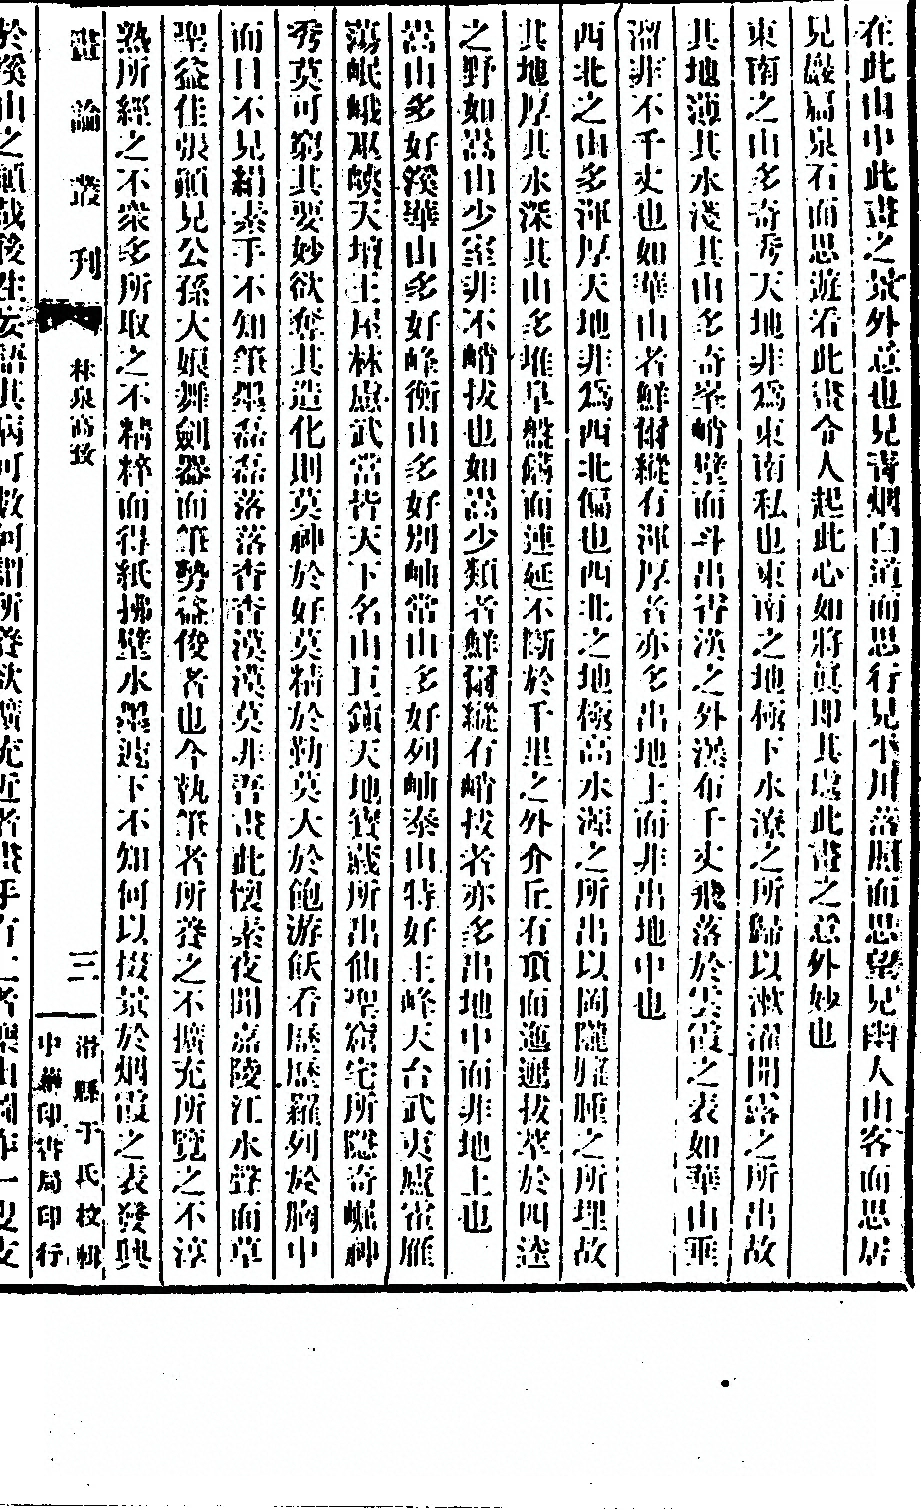 在此山中此畫之景外意也見青烟白道而思行見平川落照而思望見幽人山客而思居
見巖扃泉石而思遊看此畫令人起此心如將眞即其處此畫之意外妙也
東南之山多奇秀天地非爲東南私也東南之地極下水潦之所歸以漱濯開露之所出故
其地薄其水淺其山多奇峯峭壁而斗出霄漢之外瀑布千丈飛落於雲霞之表如華山垂
溜非不千丈也如華山者鮮爾縱有渾厚者亦多出地上而非出地中也
西北之山多渾厚天地非爲西北偏也西北之地極高水源之所出以岡隴臃腫之所埋故
其地厚其水深其山多堆阜盤礴而連延不斷於千里之外介丘有頂而迤邐拔萃於四逵
之野如嵩山少室非不峭拔也如嵩少類者鮮爾縱有峭拔者亦多出地中而非地上也
嵩山多好溪華山多好峰衡山多好別岫常山多好列岫泰山特好主峰天台武夷廬霍雁
蕩岷峨巫峽天壇王屋林慮武當皆天下名山巨鎮天地寶藏所出仙聖窟宅所隱奇崛神
秀莫可窮其要妙欲奪其造化則莫神於好莫精於勤莫大於飽游飫看歷歷羅列於胸中
而目不見絹素手不知筆墨磊磊落落杳杳漠漠莫非吾畫此懷素夜聞嘉陵江水聲而草
聖益佳張顛見公孫大娘舞劍器而筆勢益俊者也今執筆者所養之不擴充所覽之不淳
熟所經之不衆多所取之不精粹而得紙拂壁水墨遽下不知何以掇景於烟霞之表發興
畫論叢刊
林泉高致
三
濰縣于氏校輯
中華印書局印行
於溪山之顛哉後生妄語其病可數何謂所養欲擴充近者畫手有仁者樂山圖作一叟支